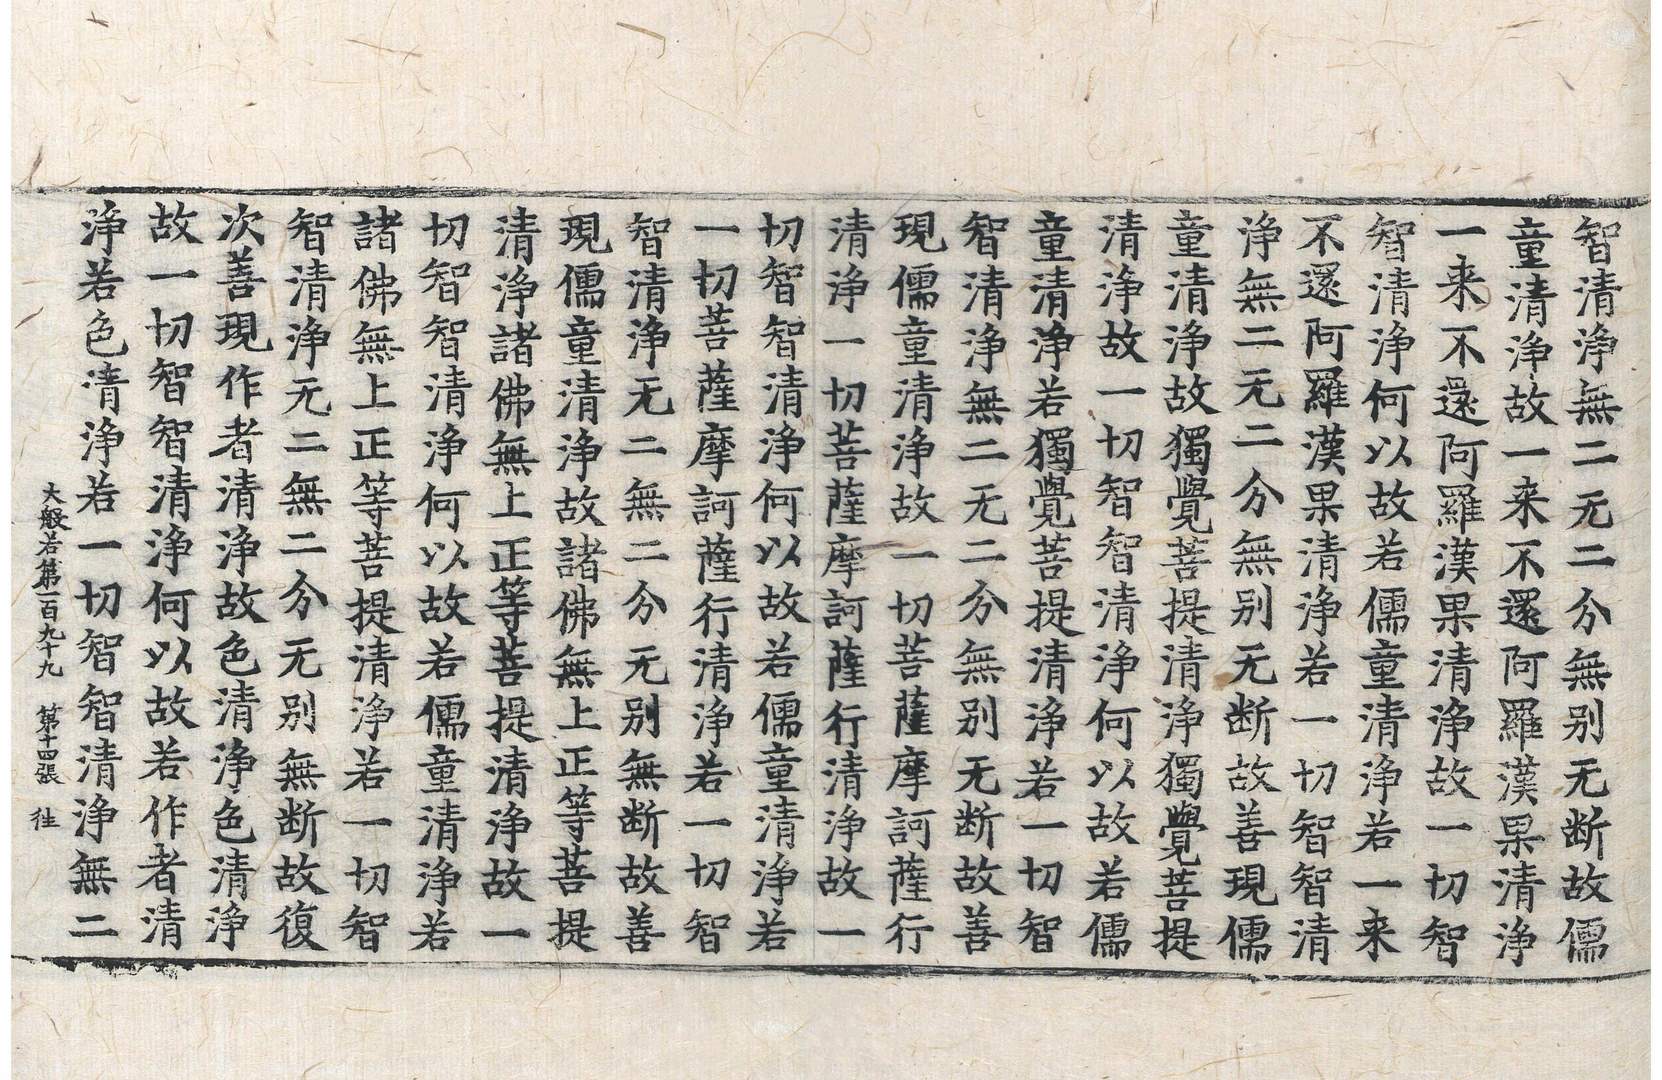 智清淨無二无二分無別无断故儒
童清淨故一来不還阿羅漢果清淨
一来不還阿羅漢果清淨故一切智
智清淨何以故若儒童清淨若一来
不還阿羅漢果清淨若一切智智清
淨無二无二分無別无断故善現儒
童清淨故獨覺菩提清淨獨覺菩提
清淨故一切智智清淨何以故若儒
童清淨若獨覺菩提清淨若一切智
智清淨無二无二分無別无断故善
現儒童清淨故一切菩薩摩訶薩行
清淨一切菩薩摩訶薩行清淨故一
切智智清淨何以故若儒童清淨若
一切菩薩摩訶薩行清淨若一切智
智清淨无二無二分无別無断故善
現儒童清淨故諸佛無上正等菩提
清淨諸佛無上正等菩提清淨故一
切智智清淨何以故若儒童清淨若
諸佛無上正等菩提清淨若一切智
智清淨无二無二分无別無断故復
次善現作者清淨故色清淨色清淨
故一切智智清淨何以故若作者清
淨若色清淨若一切智智清淨無二
大般若第一百九十九 第十四張 往